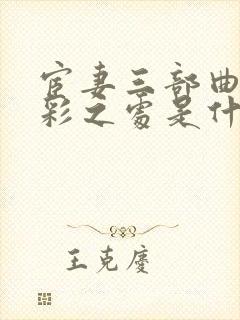 宦妻三部曲
彩之處是什
王克慶